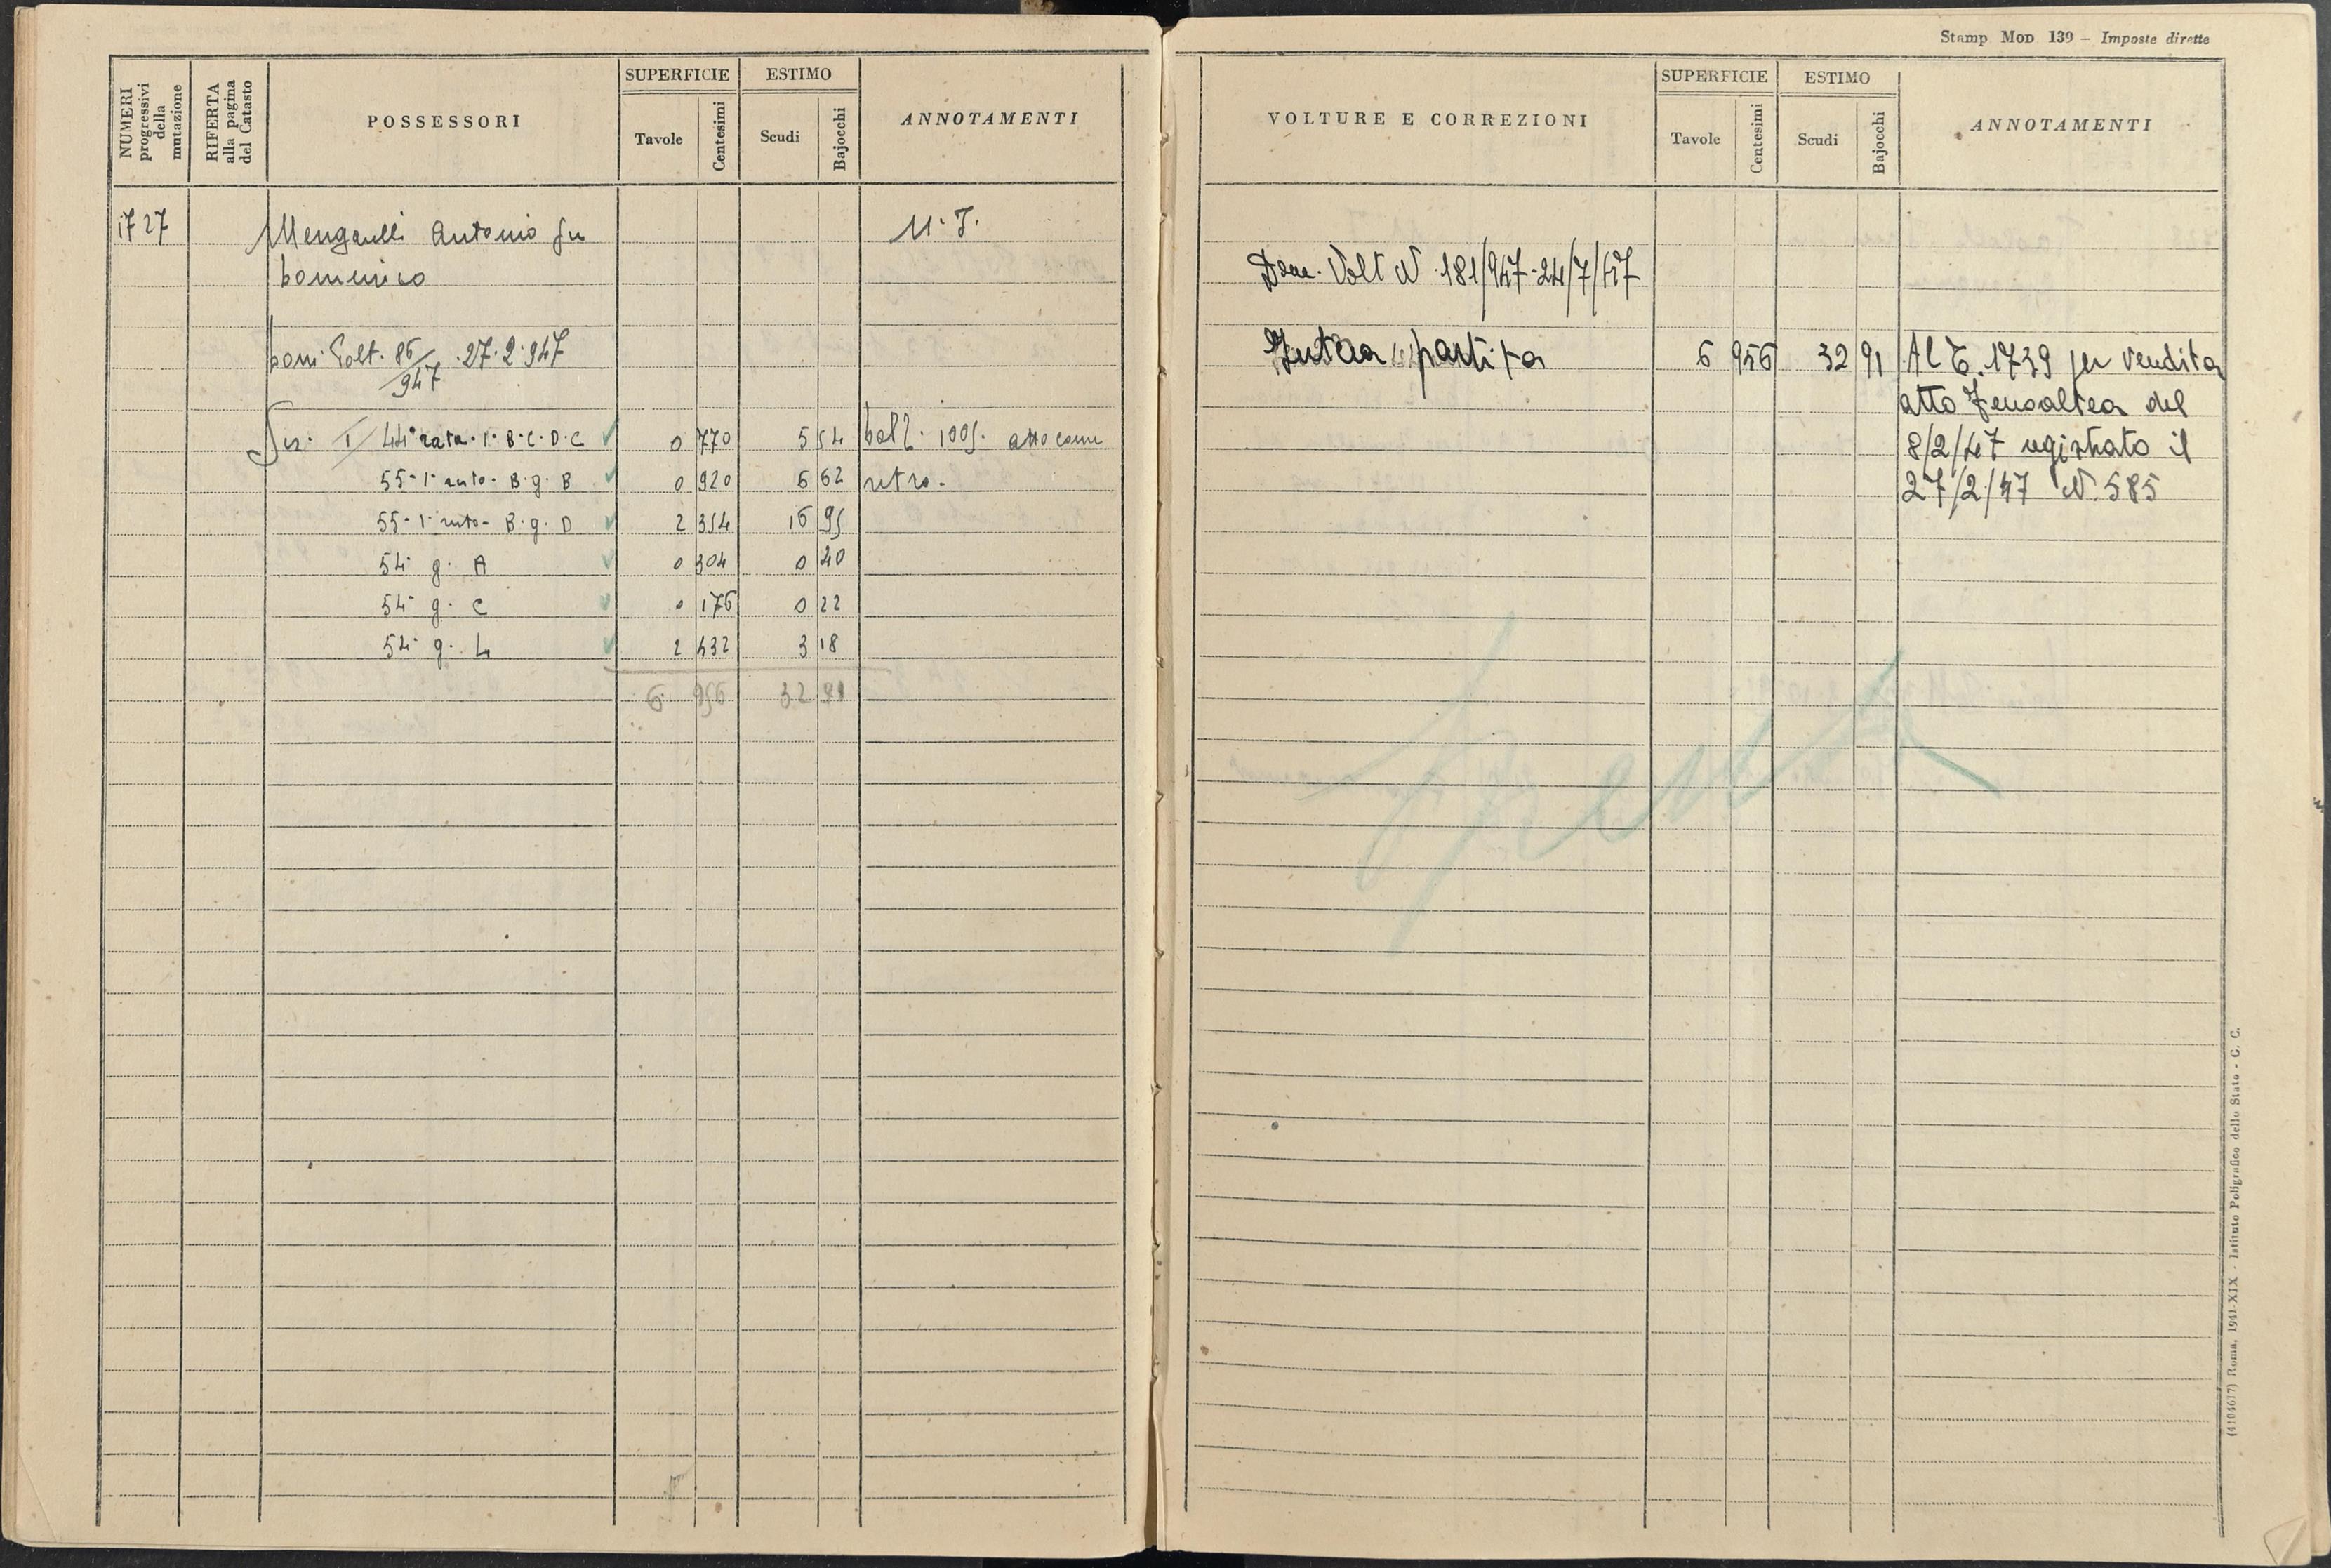 NUMERI progressivi della mutazione
RIFERTA alla pagina del Catasto
POSSESSORI
SUPERFICIE
Tavole
Centesimi
ESTIMO
Scudi
Bajocchi
ANNOTAMENTI
1727 Mengarelli Antonio fu M. I.
Domenico
Dom. Volt. 86/947 . 27.2.947
Sez. I / 44 rata. 1. B. C. D. C 0 770 5 54 boll. 1005. atto come
55. 1. rata. B. g. B 0 920 6 62 retro.
55. 1. rata. B. g. D 2 354 16 95
54 g. A 0 304 0 40
54 g. C 0 176 0 22
54 g. L 2 432 3 18
6 956 32 91
Stamp Mod 139 – Imposte dirette
VOLTURE E CORREZIONI
SUPERFICIE
Tavole
Centesimi
ESTIMO
Scudi
Bajocchi
ANNOTAMENTI
Dom. Volt N. 181/947-24/7/47
Intera partita 6 956 32 91 Al C. 1739 per vendita
atto del
8/2/47 registrato il
27/2/47 N. 585
Spenta
(410617) Roma, 1941-XIX - Istituto Poligrafico dello Stato - G. C.